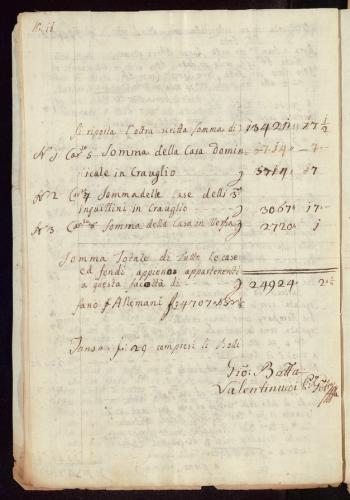 Si riporta l'oltra scritta Somma di 13421 17 1/2
N 1 Car. 5 Somma della Casa Domin-
nicale in Crauglio 5714 17
N 2 Car. 7 Somma delle Case delli
inquilini in Crauglio 3067 17
N 3 Somma della Casa in Versa 2720 1
Somma Totale di tutte le case
ed fondi appieno appartenenti
a questa facoltà di 24924 2 1/2
fano f Allemani f 4707
Tansa f 29 compresi li Bolli
Gio: Batta
Valentinucci